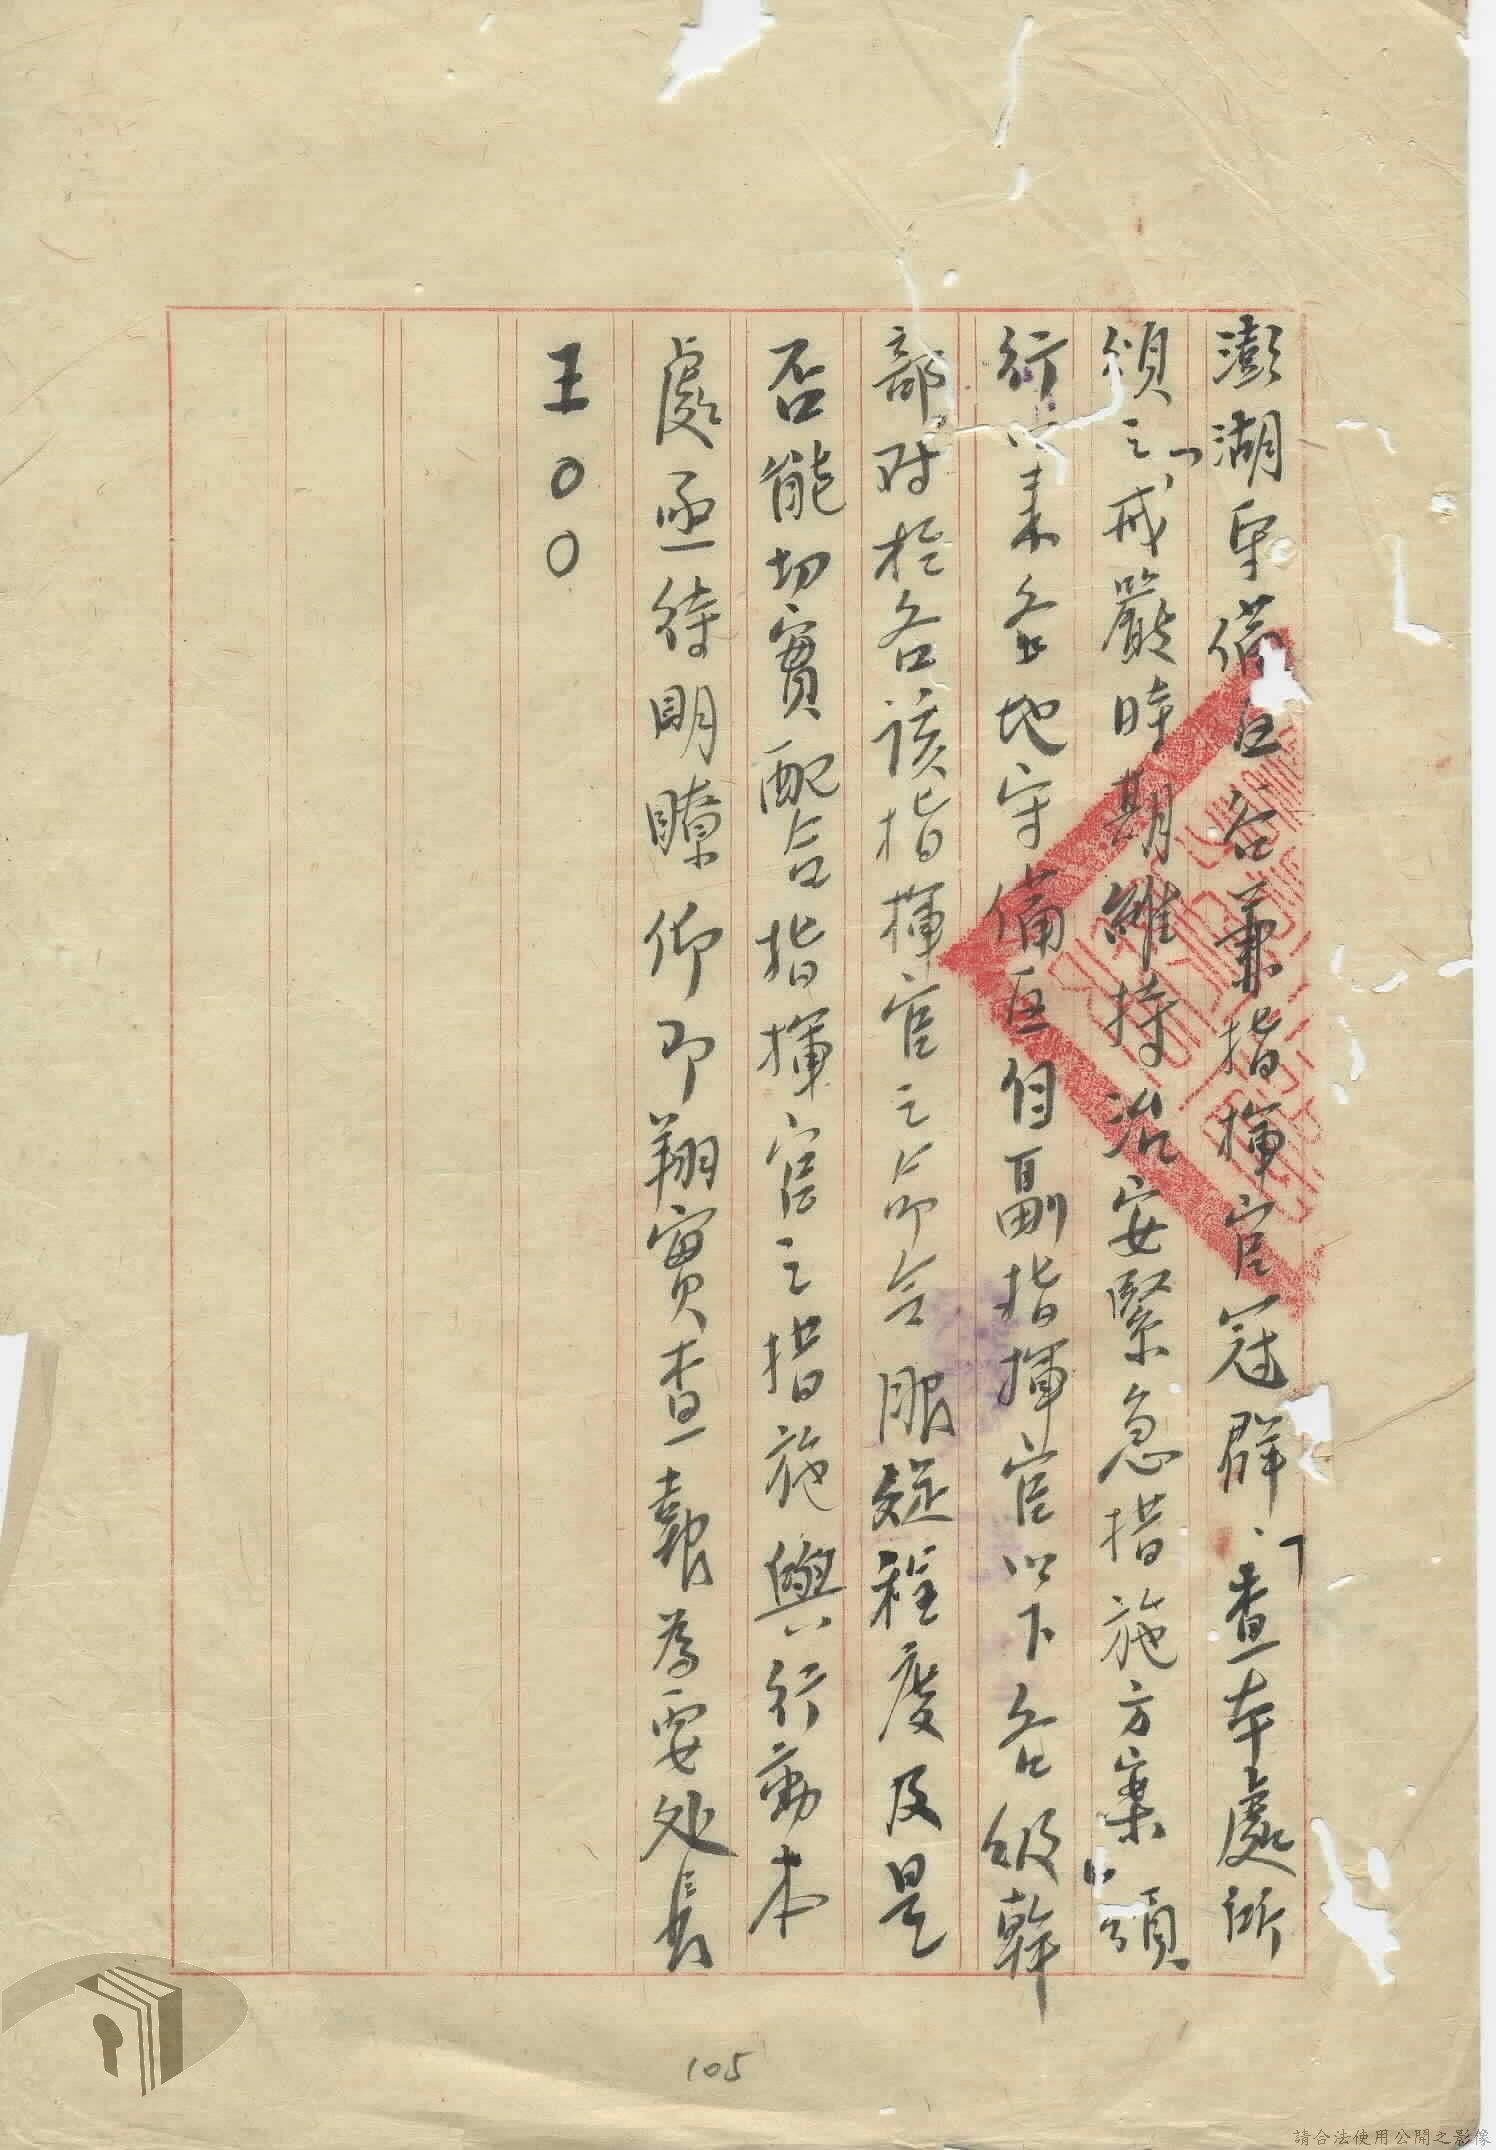 澎湖守備區谷兼指揮官冠群：「查本處所
頒之「戒嚴時期維持治安緊急措施方案」頒
行以來各地守備區自副指揮官以下各級幹
部對於各該指揮官之命令服從程度及是
否能切實配合指揮官之措施與行動本
處亟待明瞭仰即翔實查報為要处長
王○○
105
請合法使用公開之影像